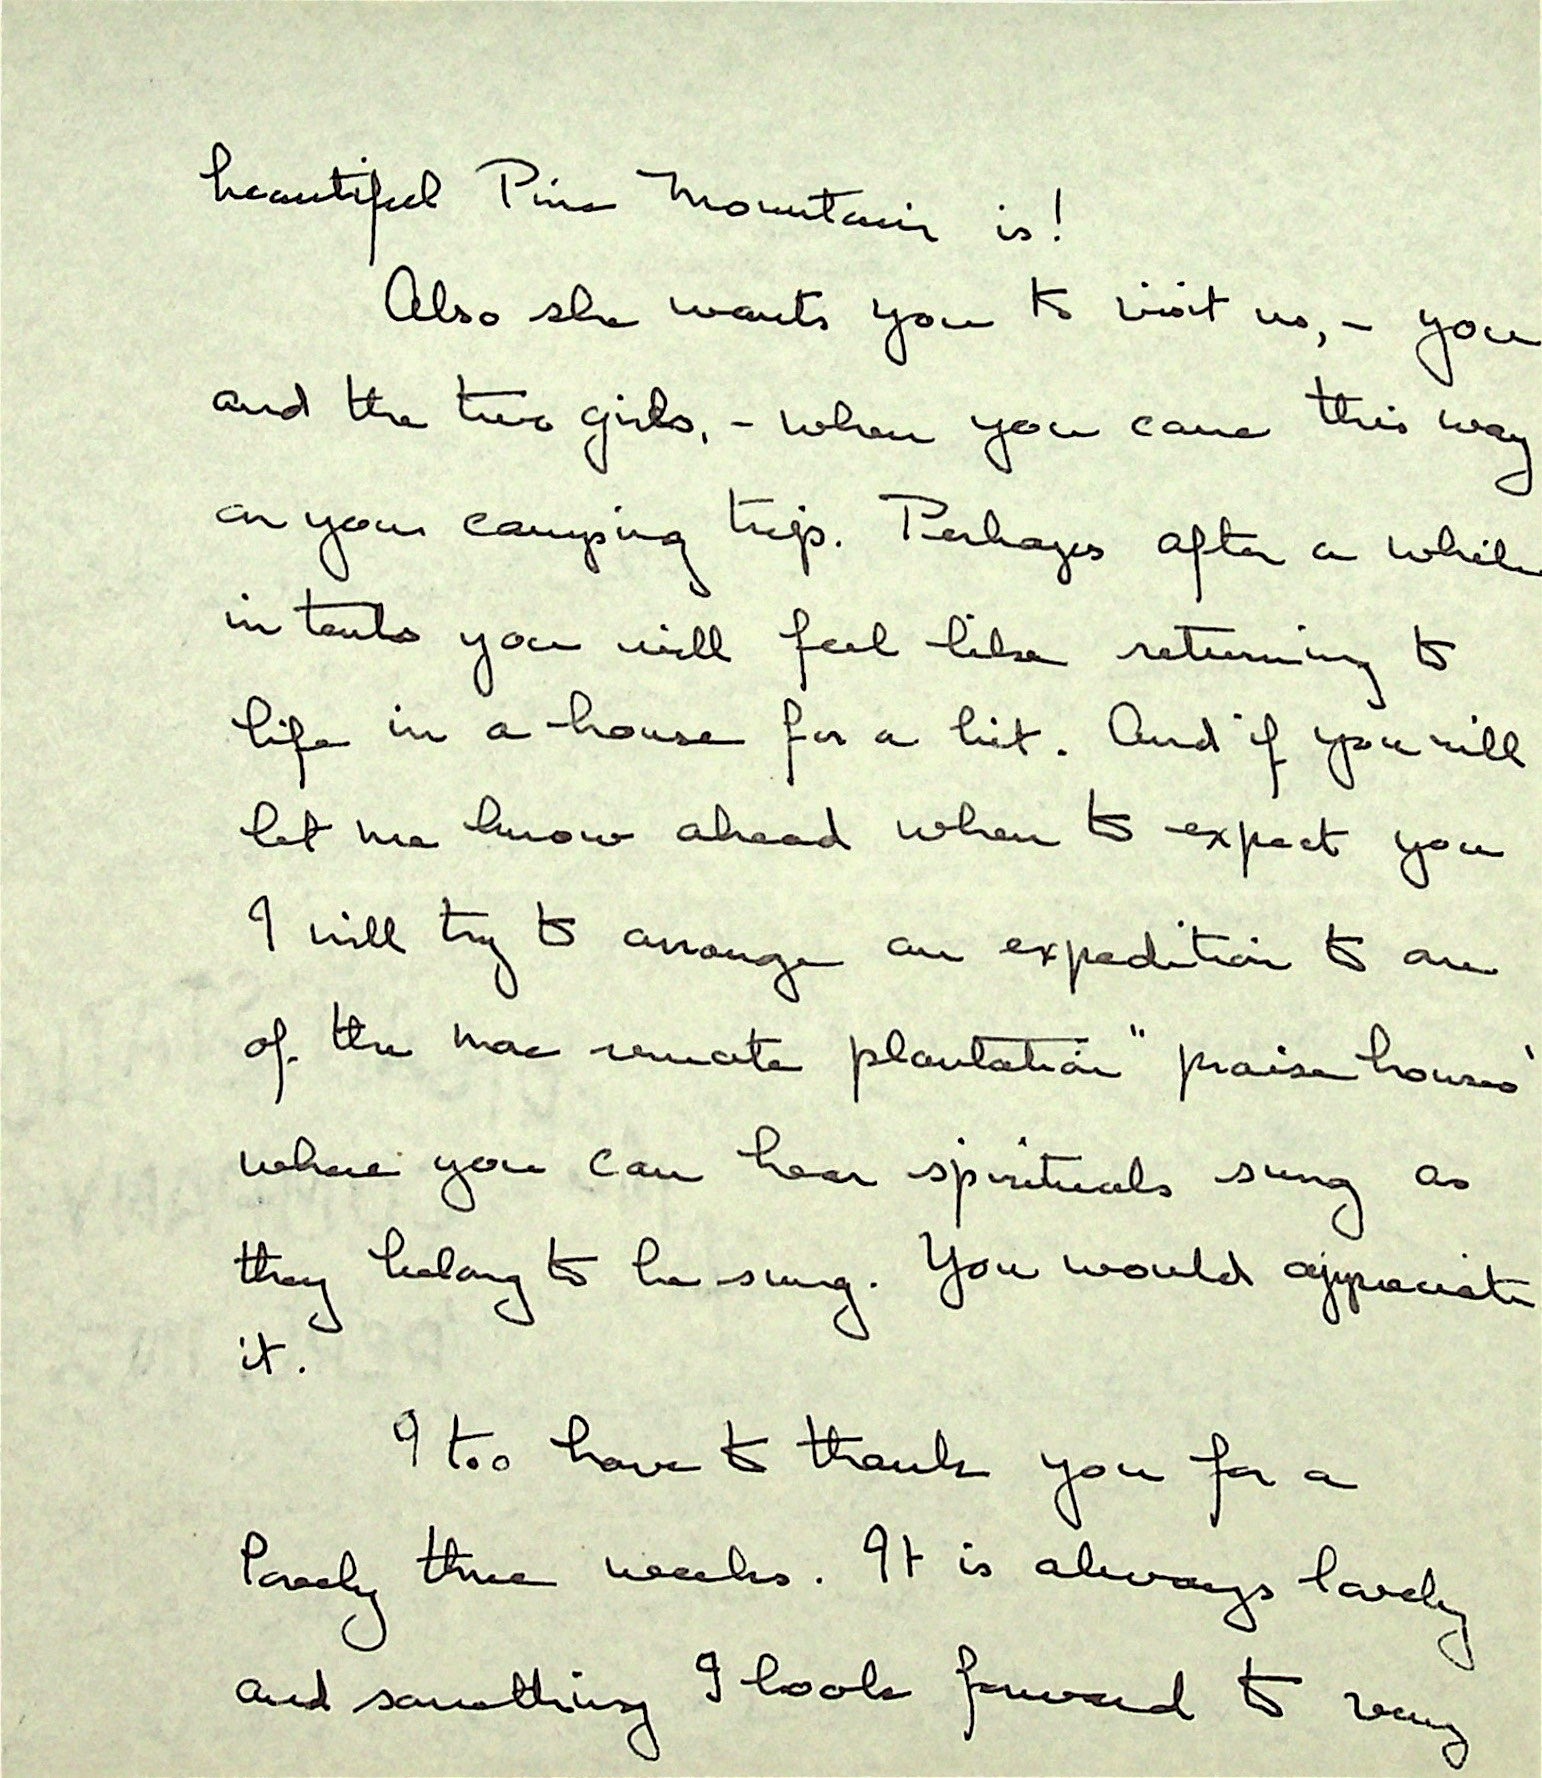 beautiful Pine Mountain is!
Also she wants you to visit us, - you
and the two girls, - when you come this way
on your camping trip. Perhaps after a while
in tents you will feel like returning to
life in a house for a bit. And if you will
let me know ahead when to expect you
I will try to arrange an expedition to one
of the more remote plantation "praise houses"
where you can hear spirituals sung as
they belong to be sung. You would appreciate
it.
I too have to thank you for a
lovely three weeks. It is always lovely
and something I look forward to very